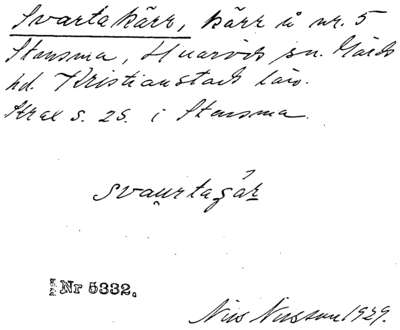 Svarta kärr, kärr å nr. 5
Stensma, Huaröds sn. Gärds
hd. Kristianstads län.
Strax s. 25. i Stensma.
svau̯rtaʒár
Nr 5332.
Nils Nilsson 1929.